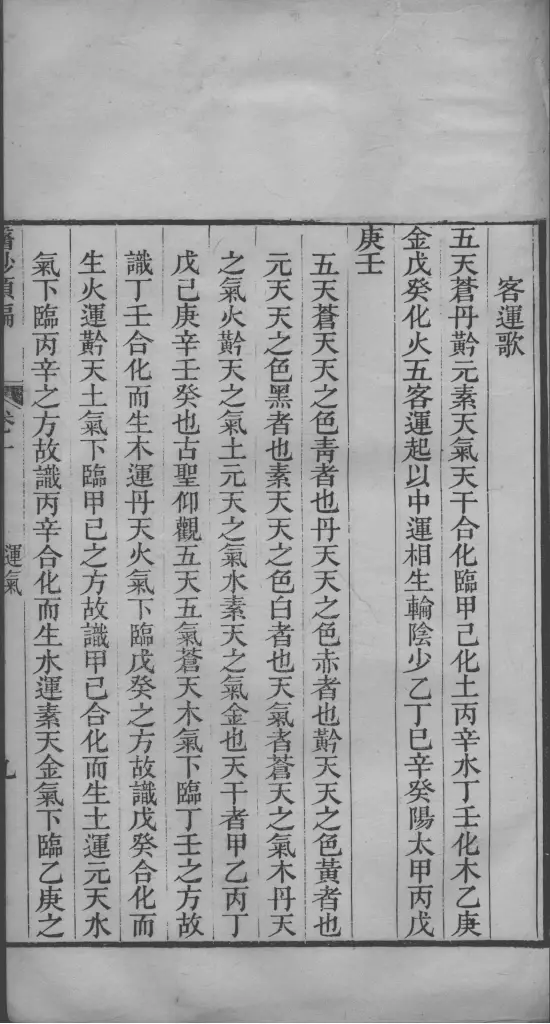 客運歌
五天蒼丹黅元素天氣天干合化臨甲己化土丙辛水丁壬化木乙庚
金戊癸化火五客運起以中運相生輪陰少乙丁巳辛癸陽太甲丙戊
庚壬
五天蒼天天之色青者也丹天天之色赤者也黅天天之色黃者也
元天天之色黑者也素天天之色白者也天氣者蒼天之氣木丹天
之氣火黅天之氣土元天之氣水素天之氣金也天干者甲乙丙丁
戊己庚辛壬癸也古聖仰觀五天五氣蒼天木氣下臨丁壬之方故
識丁壬合化而生木運丹天火氣下臨戊癸之方故識戊癸合化而
生火運黅天土氣下臨甲己之方故識甲己合化而生土運元天水
氣下臨丙辛之方故識丙辛合化而生水運素天金氣下臨乙庚之
卷一 運氣 九